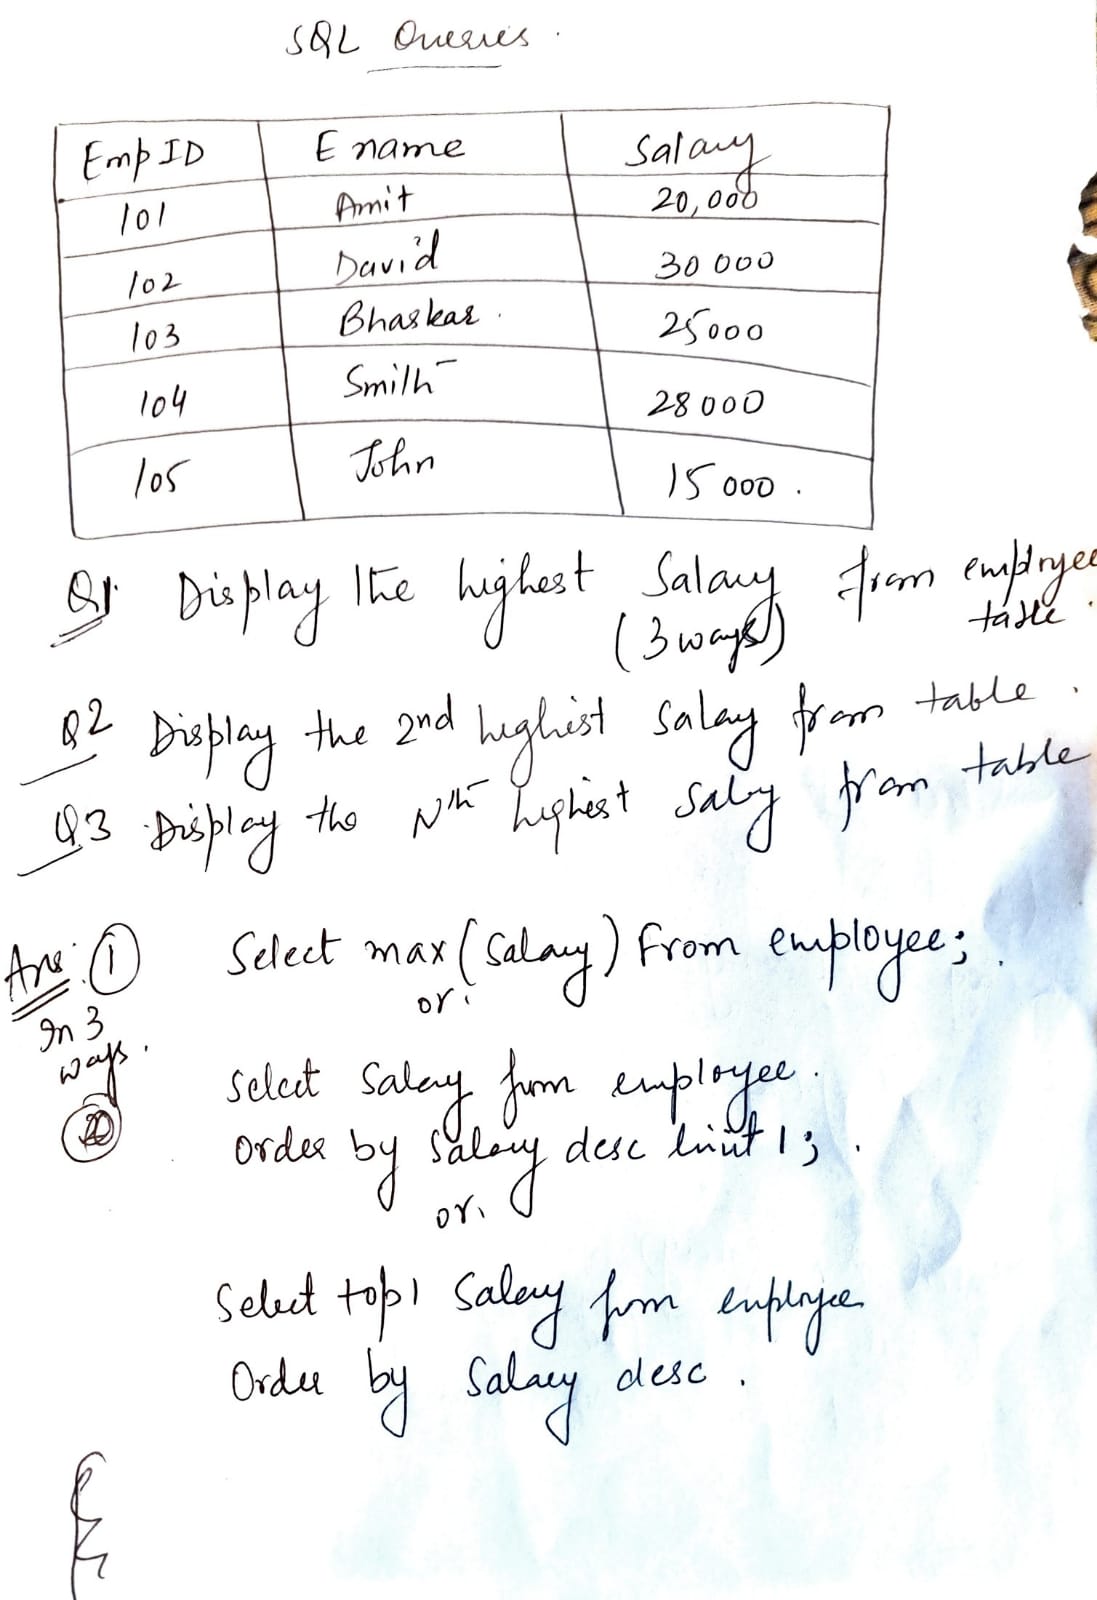 SQL Queries.
Emp ID E name Salary
101 Amit 20,000
102 David 30 000
103 Bhaskar. 25000
104 Smith 28 000
105 John 15 000.
Q1. Display the highest Salary from employee
(3 ways) table.
Q2 Display the 2nd highest Salary from table.
Q3 Display the Nth highest Salry from table
Ans: ① Select max (Salary) From employee;
In 3 or.
ways.
Select Salary from employee.
② Order by Salary desc limit 1;
or.
Select top 1 Salary from employee
Order by Salary desc.